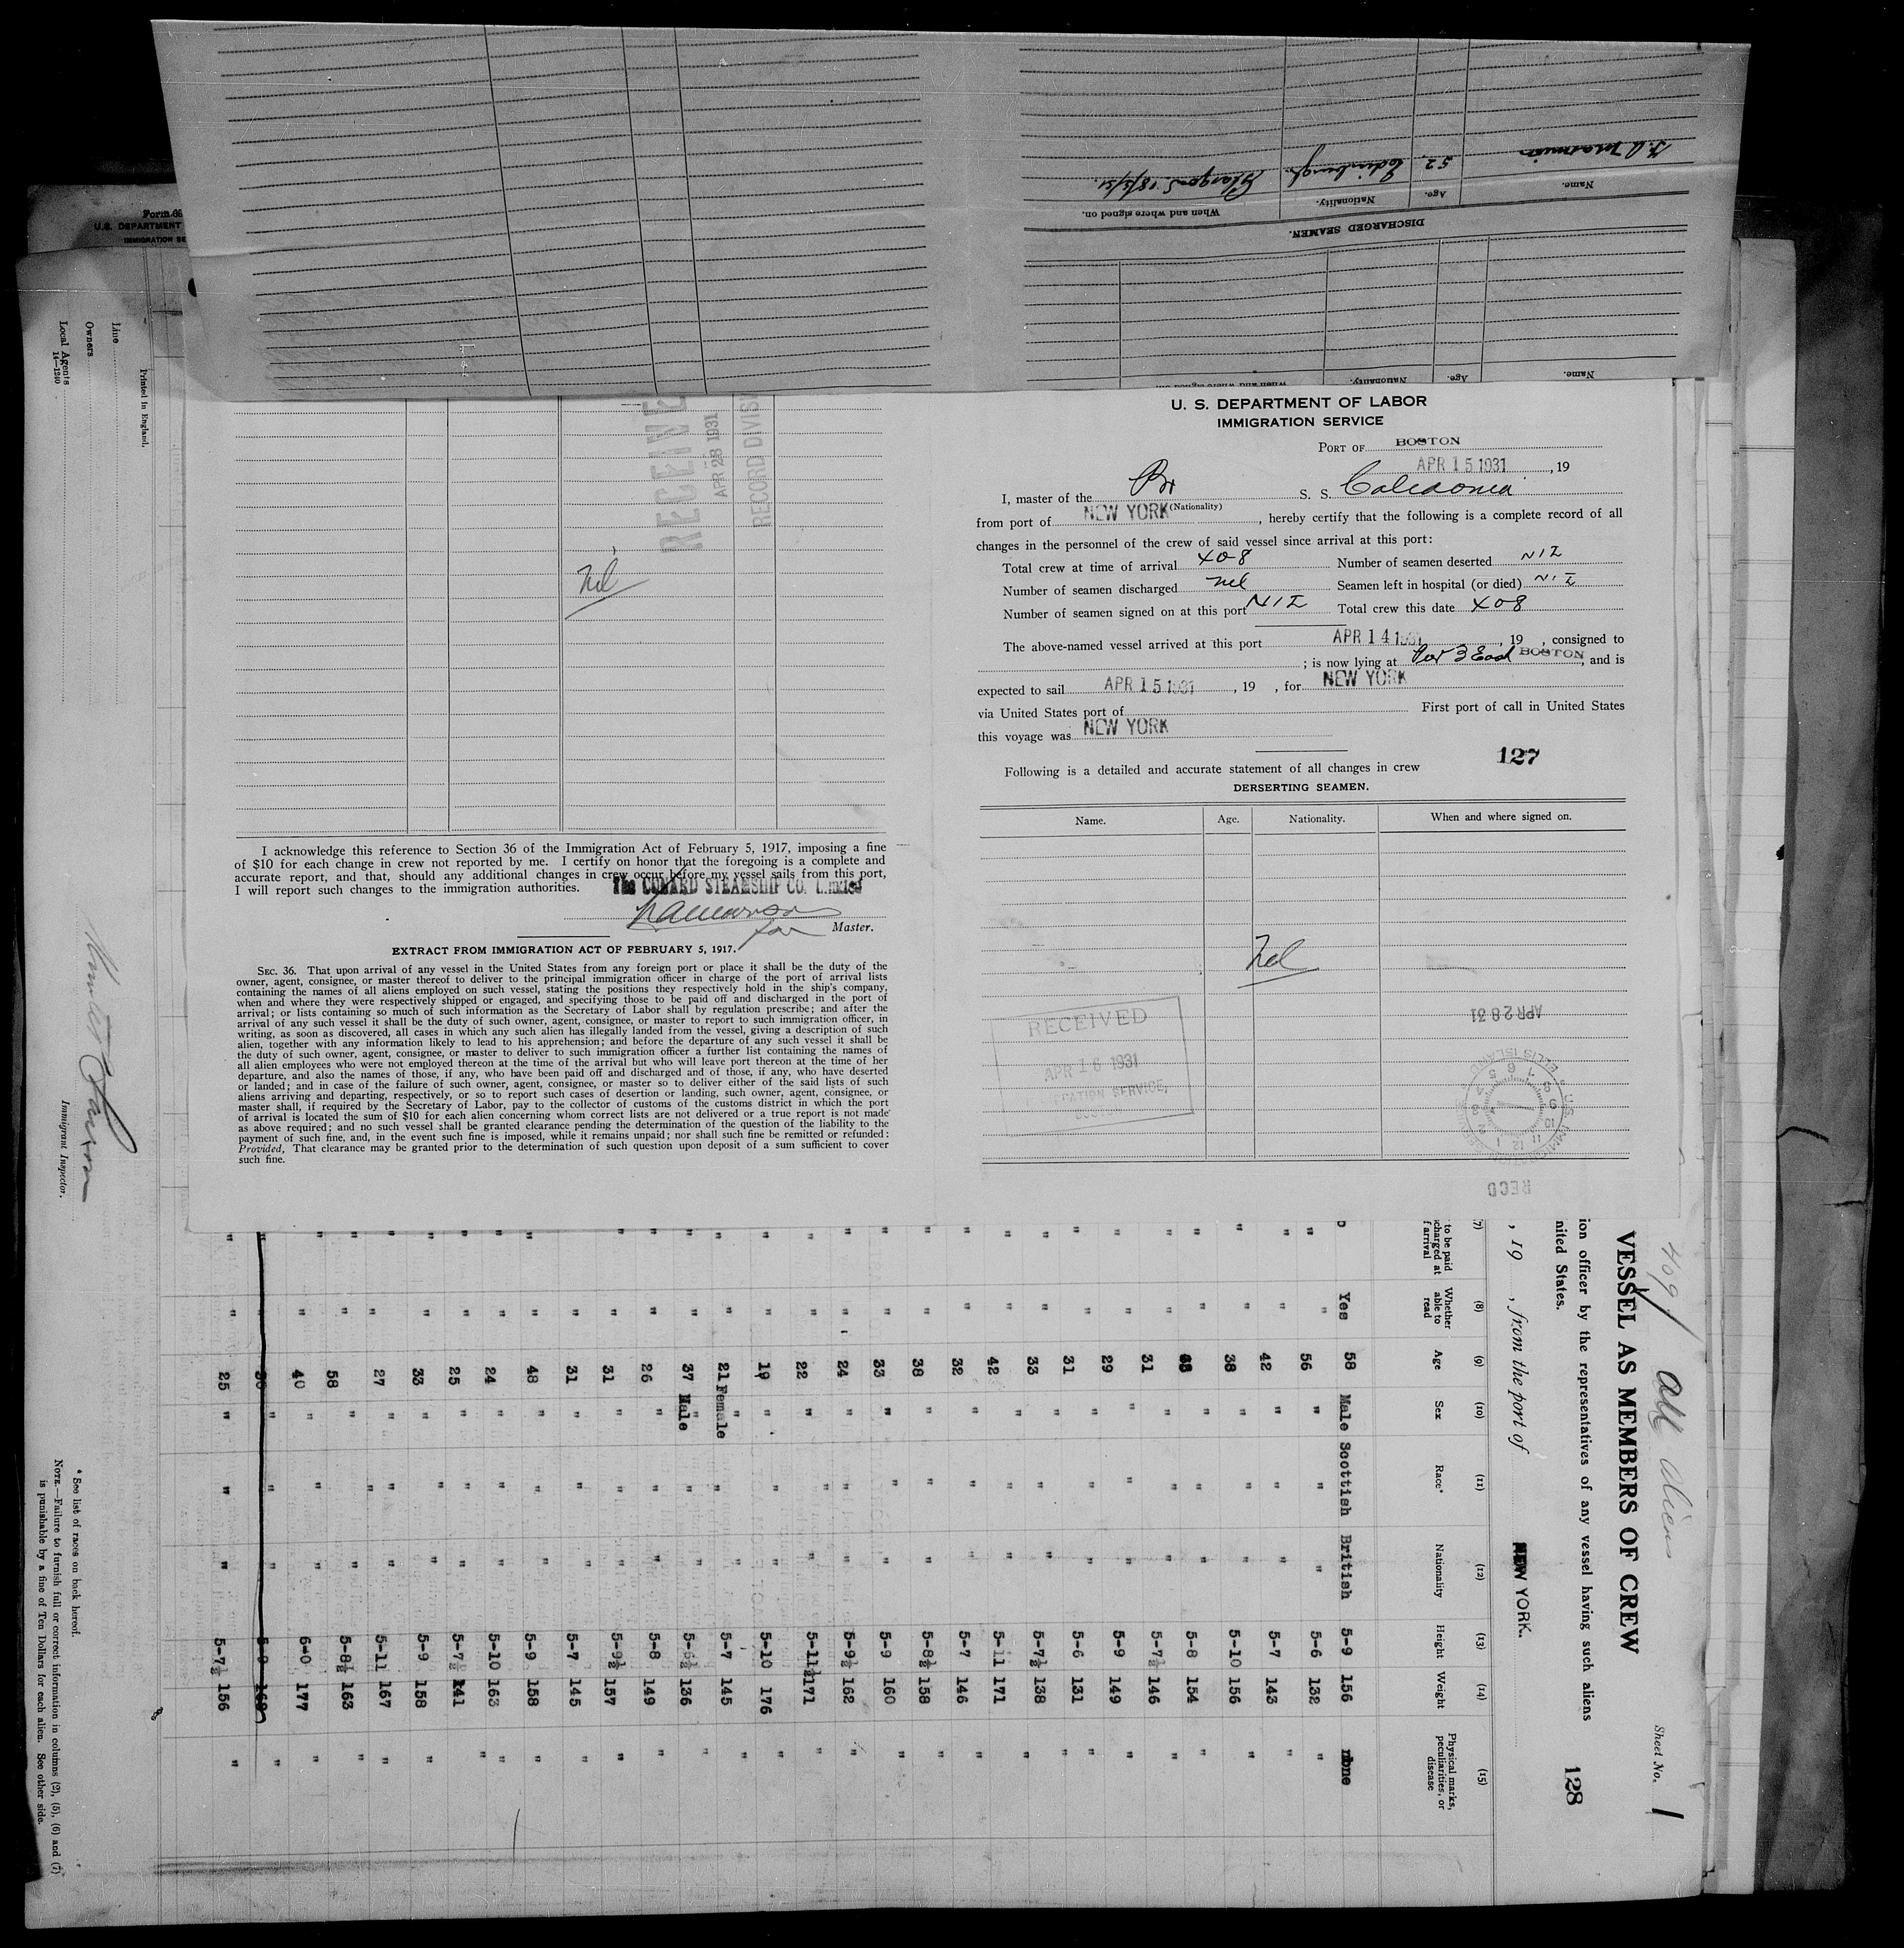 Name.
Age.
Nationality.
When and where signed on.
52
Edinburgh.
Glasgow
DISCHARGED SEAMEN.
Name.
Age.
Nationality.
When and where signed on
U. S. DEPARTMENT OF LABOR
IMMIGRATION SERVICE
PORT OF BOSTON
APR 15 1931, 19
I, master of the Br S. S. Caledonia
(Nationality)
from port of NEW YORK, hereby certify that the following is a complete record of all
changes in the personnel of the crew of said vessel since arrival at this port:
Total crew at time of arrival 408 Number of seamen deserted NIL
Number of seamen discharged nil Seamen left in hospital (or died) NIL
Number of seamen signed on at this port NIL Total crew this date 408
The above-named vessel arrived at this port APR 14 1931, 19 , consigned to
; is now lying at Pier 3 East BOSTON, and is
expected to sail APR 15 1931, 19 , for NEW YORK
via United States port of First port of call in United States
this voyage was NEW YORK
127
Following is a detailed and accurate statement of all changes in crew
DERSERTING SEAMEN.
Name. Age. Nationality. When and where signed on.
Nil
RECEIVED
APR 16 1931
APR 28 31
RECD
RECEIVE
APR 28 1931
RECORD DIVIS
Nil
I acknowledge this reference to Section 36 of the Immigration Act of February 5, 1917, imposing a fine
of $10 for each change in crew not reported by me. I certify on honor that the foregoing is a complete and
accurate report, and that, should any additional changes in crew occur before my vessel sails from this port,
I will report such changes to the immigration authorities.
The CUNARD STEAMSHIP CO. Limited
for Master.
EXTRACT FROM IMMIGRATION ACT OF FEBRUARY 5, 1917.
SEC. 36. That upon arrival of any vessel in the United States from any foreign port or place it shall be the duty of the
owner, agent, consignee, or master thereof to deliver to the principal immigration officer in charge of the port of arrival lists
containing the names of all aliens employed on such vessel, stating the positions they respectively hold in the ship's company,
when and where they were respectively shipped or engaged, and specifying those to be paid off and discharged in the port of
arrival; or lists containing so much of such information as the Secretary of Labor shall by regulation prescribe; and after the
arrival of any such vessel it shall be the duty of such owner, agent, consignee, or master to report to such immigration officer, in
writing, as soon as discovered, all cases in which any such alien has illegally landed from the vessel, giving a description of such
alien, together with any information likely to lead to his apprehension; and before the departure of any such vessel it shall be
the duty of such owner, agent, consignee, or master to deliver to such immigration officer a further list containing the names of
all alien employees who were not employed thereon at the time of the arrival but who will leave port thereon at the time of her
departure, and also the names of those, if any, who have been paid off and discharged and of those, if any, who have deserted
or landed; and in case of the failure of such owner, agent, consignee, or master so to deliver either of the said lists of such
aliens arriving and departing, respectively, or so to report such cases of desertion or landing, such owner, agent, consignee, or
master shall, if required by the Secretary of Labor, pay to the collector of customs of the customs district in which the port
of arrival is located the sum of $10 for each alien concerning whom correct lists are not delivered or a true report is not made
as above required; and no such vessel shall be granted clearance pending the determination of the question of the liability to the
payment of such fine, and, in the event such fine is imposed, while it remains unpaid; nor shall such fine be remitted or refunded:
Provided, That clearance may be granted prior to the determination of such question upon deposit of a sum sufficient to cover
such fine.
Form 68
U.S. DEPARTMENT
IMMIGRATION SE
Printed in England.
Line
Owners
Local Agents
14—1240
Immigrant Inspector.
409 / All Aliens
Sheet No. 1
VESSEL AS MEMBERS OF CREW
ion officer by the representatives of any vessel having such aliens
nited States.
128
, 19 , from the port of NEW YORK.
(7) (8) (9) (10) (11) (12) (13) (14) (15)
to be paid
charged at
f arrival
Whether able to read
Age
Sex
Race*
Nationality
Height
Weight
Physical marks, peculiarities, or disease
Yes 58 Male Scottish British 5-9 156 none
" " 56 " " " 5-6 132 "
" " 42 " " " 5-7 143 "
" " 38 " " " 5-10 156 "
" " " " " 5-8 154 "
" " 31 " " " 5-7½ 146 "
" " 29 " " " 5-9 149 "
" " 31 " " " 5-6 131 "
" " 33 " " " 5-7½ 138 "
" " 42 " " " 5-11 171 "
" " 32 " " " 5-7 146 "
" " 38 " " " 5-8½ 158 "
" " 33 " " " 5-9 160 "
" " 24 " " " 5-9½ 162 "
" " 22 " " " 5-11½ 171 "
" " 19 " " " 5-10 176 "
" " 21 Female " " 5-7 145 "
" " 37 Male " " 5-6½ 136 "
" " 26 " " " 5-8 149 "
" " 31 " " " 5-9½ 157 "
" " 31 " " " 5-7 145 "
" " 48 " " " 5-9 158 "
" " 24 " " " 5-10 163 "
" " 25 " " " 5-7½ 141 "
" " 33 " " " 5-9 158 "
" " 27 " " " 5-11 167 "
" " 58 " " " 5-8½ 163 "
" " 40 " " " 6-0 177 "
" " " " " 5-9 168 "
" " 25 " " " 5-7½ 156 "
* See list of races on back hereof.
NOTE.—Failure to furnish full or correct information in columns (2), (5), (6) and (7)
is punishable by a fine of Ten Dollars for each alien. See other side.